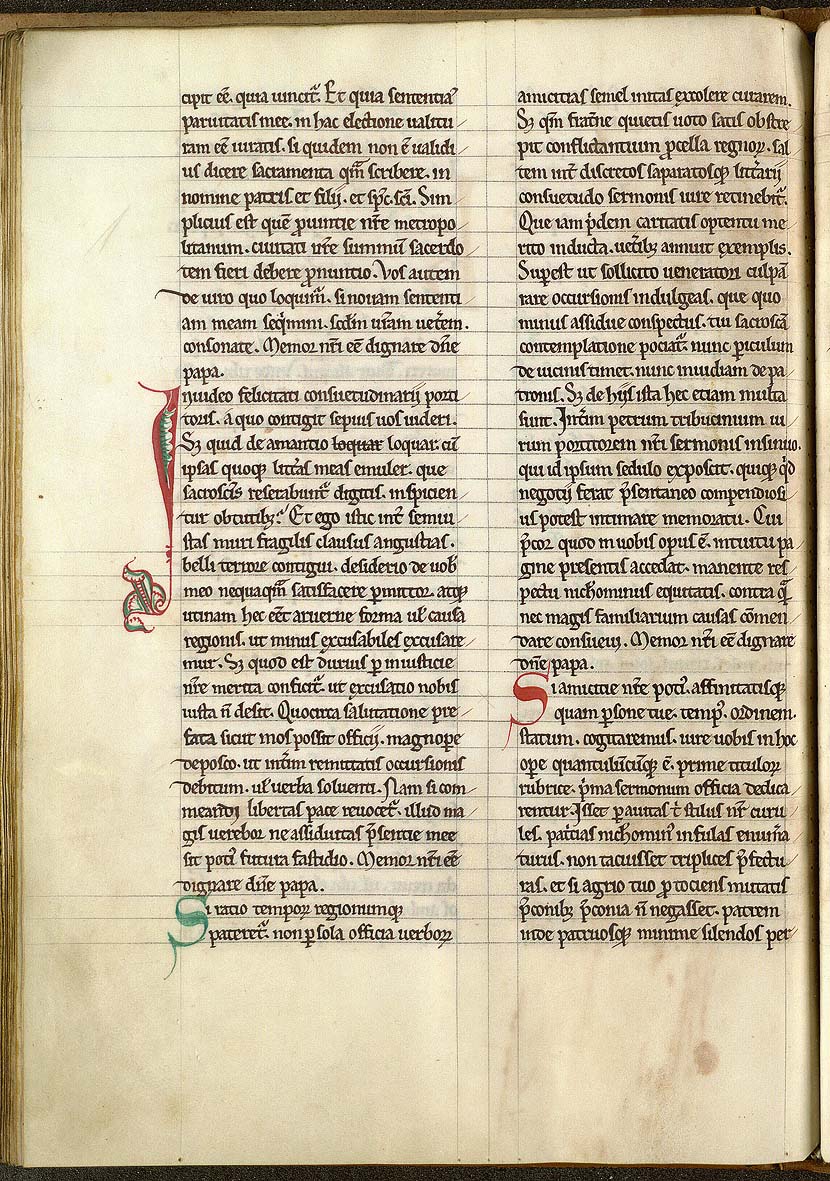 cipit eē. quia uincit᷑. Et quia sententiā
paruitatis mee. in hac electione ualitu
ram eē iurastis. si quidem non ē ualidi
us dicere sacramenta qm̄ scribere. in
nomine patris et filij. et sp̄c. sc̄i. Sim
plicius est quē prouintie nr̄e metropo
litanum. ciuitati ur̄e summū sacerdo
tem fieri debere pronuntio. Vos autem
de uiro quo loquim᷑. si nouam sententi
am meam seq̇mini. scd̄m ur̄am uet̄em.
consonate. Memor nr̄i eē dignare dn̄e
papa.
Inuideo felicitati consuetudinarij porti
toris. a quo contigit sepius uos uideri.
Sꝫ quid de amantio loquar loquar. cū
ipsas quoqꝫ litt̄as meas emuler. que
sacrosc̄is reserabunt᷑ digitis. inspicien
tur obtutibꝫ. Et ego istic int̄ semiu
stas muri fragilis clausus angustias.
belli terrore contigui. desiderio de uob̄
meo nequaqm̄ satisfacere ꝑmittor. atqꝫ
utinam hec eēt aruerne forma ul̄ causa
regionis. ut minus excusabiles excusare
mur. Sꝫ quod est durius ꝑ iniusticie
nr̄e merita conficit᷑. ut excusatio nobis
iusta n̄ desit. Quocirca salutatione pre
fata sicut mos possit officij. magnope
deposco. ut int̄im remittatis occursionis
debitum. ul̄ uerba soluenti. Nam si com
meandi libertas pace reuocet᷑. illud ma
gis uerebor ne assiduitas p̄sentie mee
sit poci᷒ futura fastidio. Memor nr̄i eē
dignare dn̄e papa.
Si ratio temporꝝ regionumqꝫ
pateret᷑. non ꝑ sola officia uerborꝝ
amicitias semel initas excolere curarem.
Sꝫ qm̄ frat̄ne quietis uoto satis obstre
pit conflictantium ꝓcella regnorꝝ. sal
tem int̄ discretos saparatosqꝫ litt̄arij
consuetudo sermonis iure retinebit᷑.
Que iam p̄dem caritatis optentu me
rito inducta. uet̄ibꝫ annuit exemplis.
Suꝑest ut sollicito ueneratori culpā
rare occursionis indulgeas. que quo
minus assidue conspectus. tui sacroscā
contemplatione pociat᷑. nunc ꝑiculum
de uicinis timet. nunc inuidiam de pa
tronis. Sꝫ de hijs ista hec etiam multa
sunt. Int̄im petrum tribucinium ui
rum portitorem nr̄i sermonis insinuo.
qui id ipsum sedulo exposcit. quiqꝫ qd̄
negotij ferat p̄sentaneo compendiosi
us potest intimare memoratu. Cui
p̄cor quod in uobis opus ē. intuitu pa
gine presentis accedat. manente res
pectu nichominus equitatis. contra qm̄
nec magis familiarium causas cōmen
dare consueui. Memor nr̄i eē dignare
dn̄e papa.
Si amicitie nr̄e poci᷒. affinitatisqꝫ
quam ꝑsone tue. temp᷒. ordinem.
statum. cogitaremus. iure uobis in hoc
ope quantulūcūqꝫ ē. prime titulorꝝ
rubrice. p̄ma sermonum officia dedica
rentur. Isset ꝑ auitas t̄ stilus nr̄ curu
les. pat̄cias nichomin᷒ infulas enum̄a
turus. non tacuisset triplices p̄fectu
ras. et si agrio tuo ꝓ tociens mutatis
p̄conibꝫ p̄conia n̄ negasset. patrem
inde patruosqꝫ minime silendos per